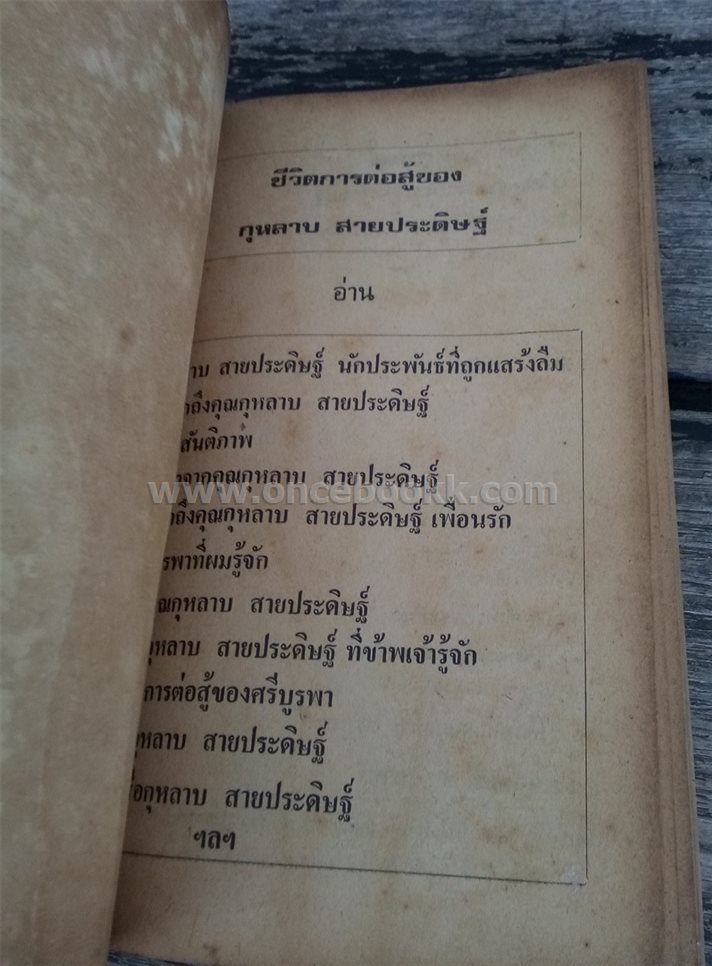 ชีวิตการต่อสู้ของ
กุหลาบ สายประดิษฐ์
อ่าน
สายประดิษฐ์ นักประพันธ์ที่ถูกแสร้งลืม
ถึงคุณกุหลาบ สายประดิษฐ์
สันติภาพ
จากคุณกุหลาบ สายประดิษฐ์
www.oncebookk.com
ถึงคุณกุหลาบ สายประดิษฐ์ เพื่อนรัก
ที่ผมรู้จัก
กุหลาบ สายประดิษฐ์
สายประดิษฐ์ ที่ข้าพเจ้ารู้จัก
การต่อสู้ของศรีบูรพา
สายประดิษฐ์
กุหลาบ สายประดิษฐ์
ฯลฯ